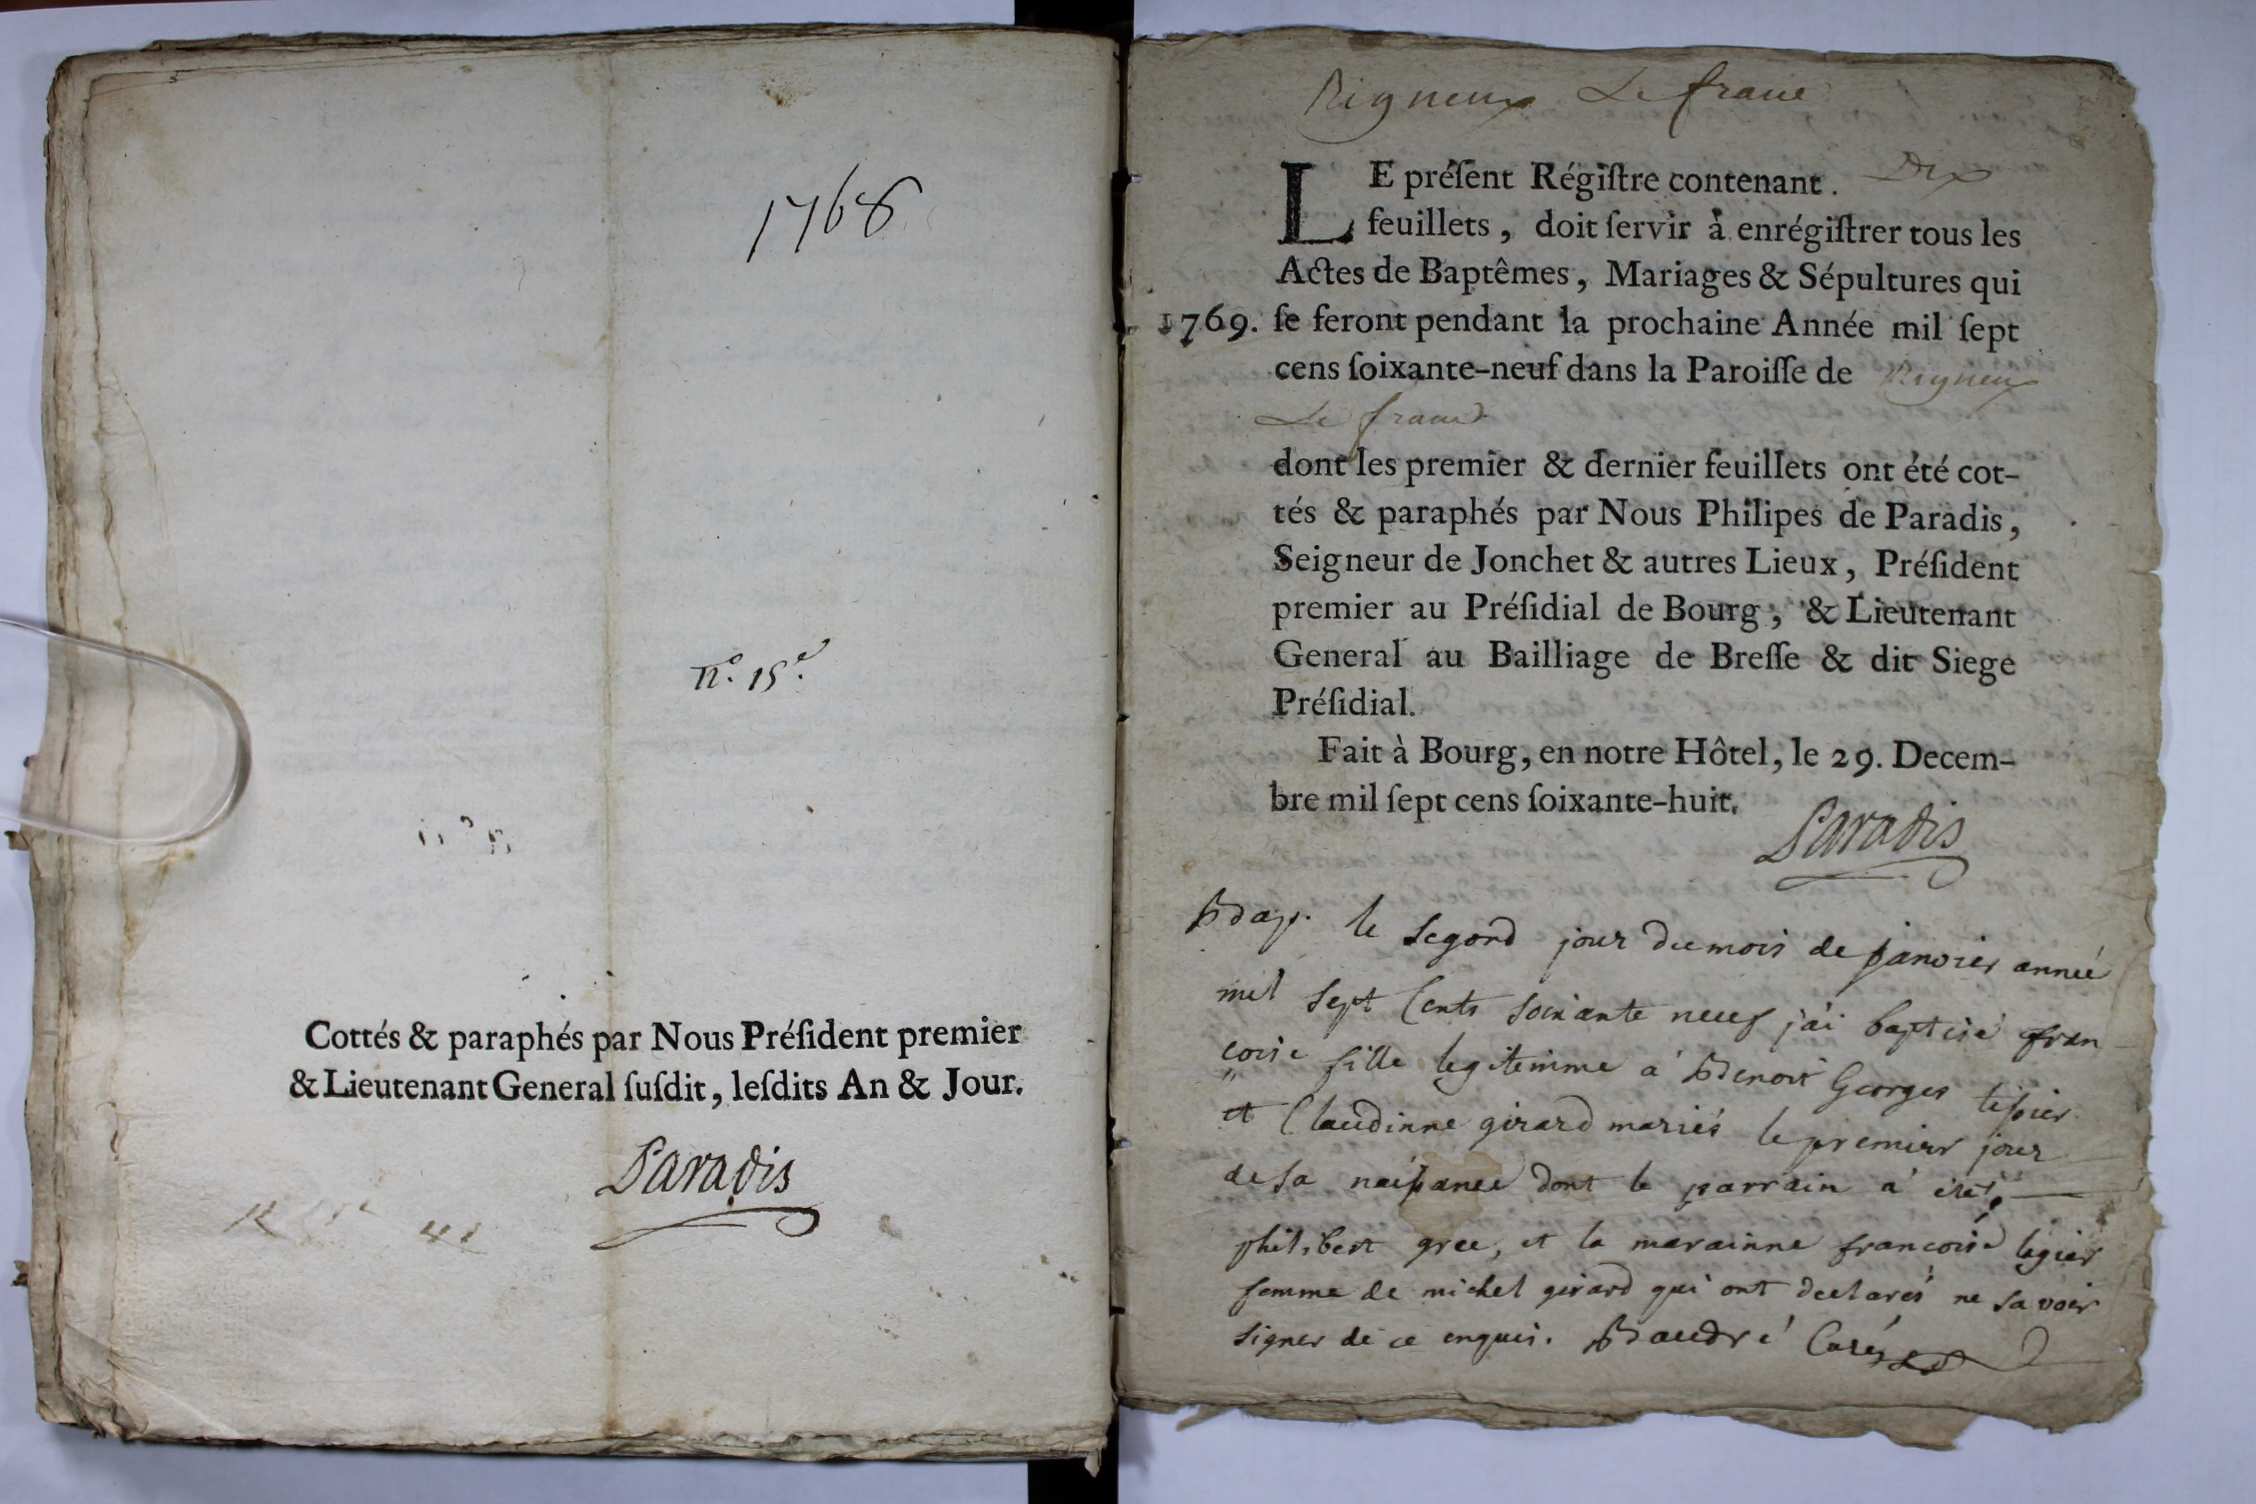 1768
n.° 15.e
Cottés & paraphés par Nous Préſident premier
& Lieutenant General ſuſdit, leſdits An & Jour.
Paradis
Rigneux Le franc
LE préſent Régiſtre contenant. Dix
feuillets, doit ſervir à enrégiſtrer tous les
Actes de Baptêmes, Mariages & Sépultures qui
1769. ſe feront pendant la prochaine Année mil ſept
cens ſoixante-neuf dans la Paroiſſe de Rigneux
Le franc
dont les premier & dernier feuillets ont été cot-
tés & paraphés par Nous Philipes de Paradis,
Seigneur de Jonchet & autres Lieux, Préſident
premier au Préſidial de Bourg, & Lieutenant
General au Bailliage de Breſſe & dit Siege
Préſidial.
Fait à Bourg, en notre Hôtel, le 29. Decem-
bre mil ſept cens ſoixante-huit.
Paradis
Bap. le segond jour du mois de janvier année
mil sept Cents soixante neuf j'ai baptisé fran
coise fille legitemme a Benoit Georges tissier
et Claudinne girard mariés le premier jour
de sa naissance dont le parrain a été
philibert gree, et la marainne francoise legier
femme de michel girard qui ont declarés ne savoir
signer de ce enquis. Baudré Curé